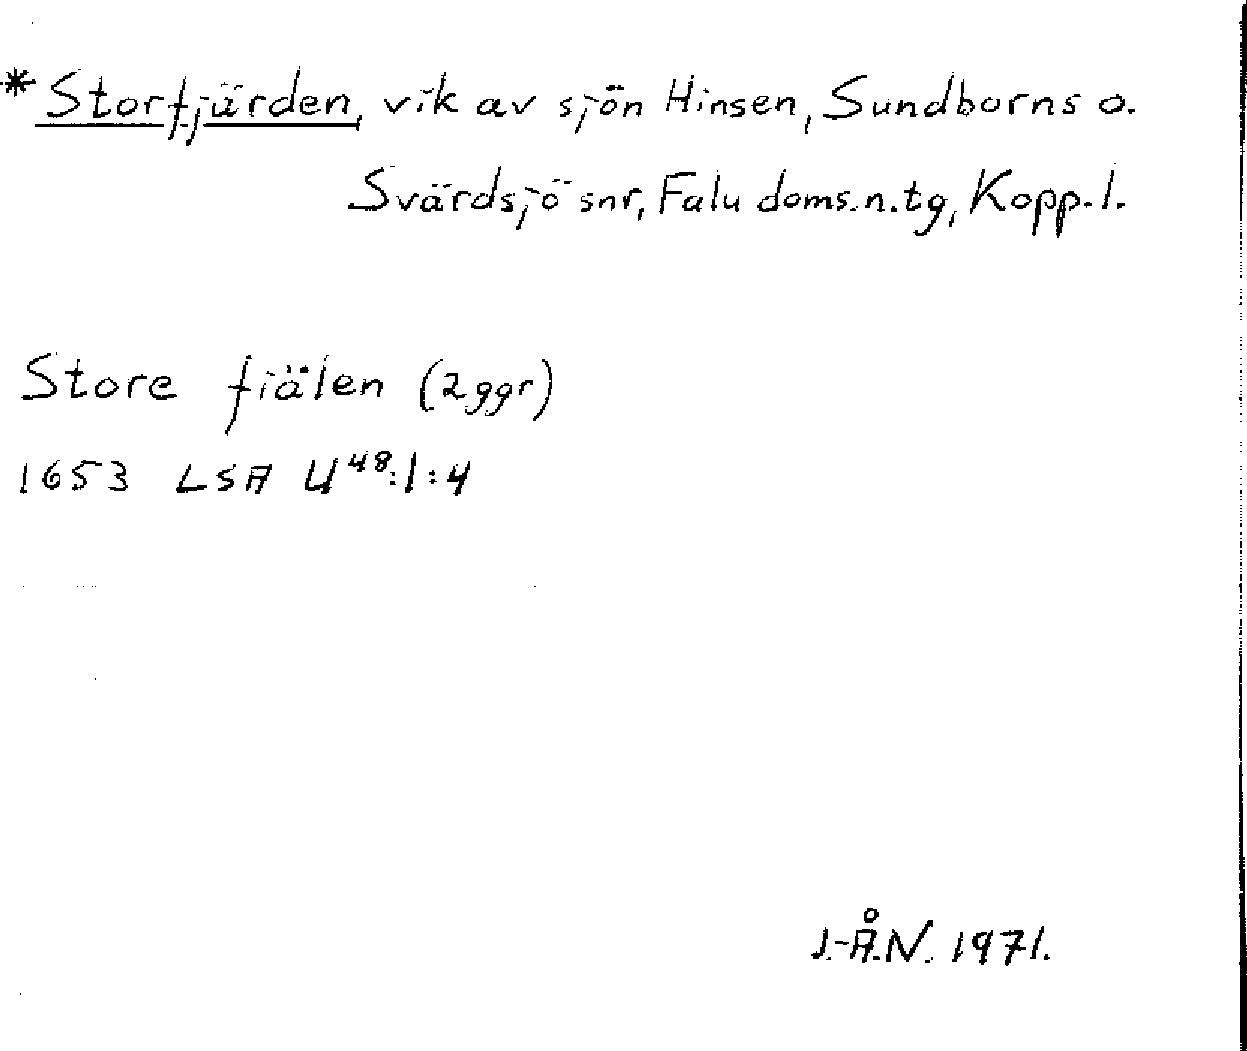 *Storfjärden, vik av sjön Hinsen, Sundborns o.
Svärdsjö snr, Falu doms.n.tg, Kopp.l.
Store fiälen (2ggr)
1653 LSA U48:1:4
J.-Å.N. 1971.